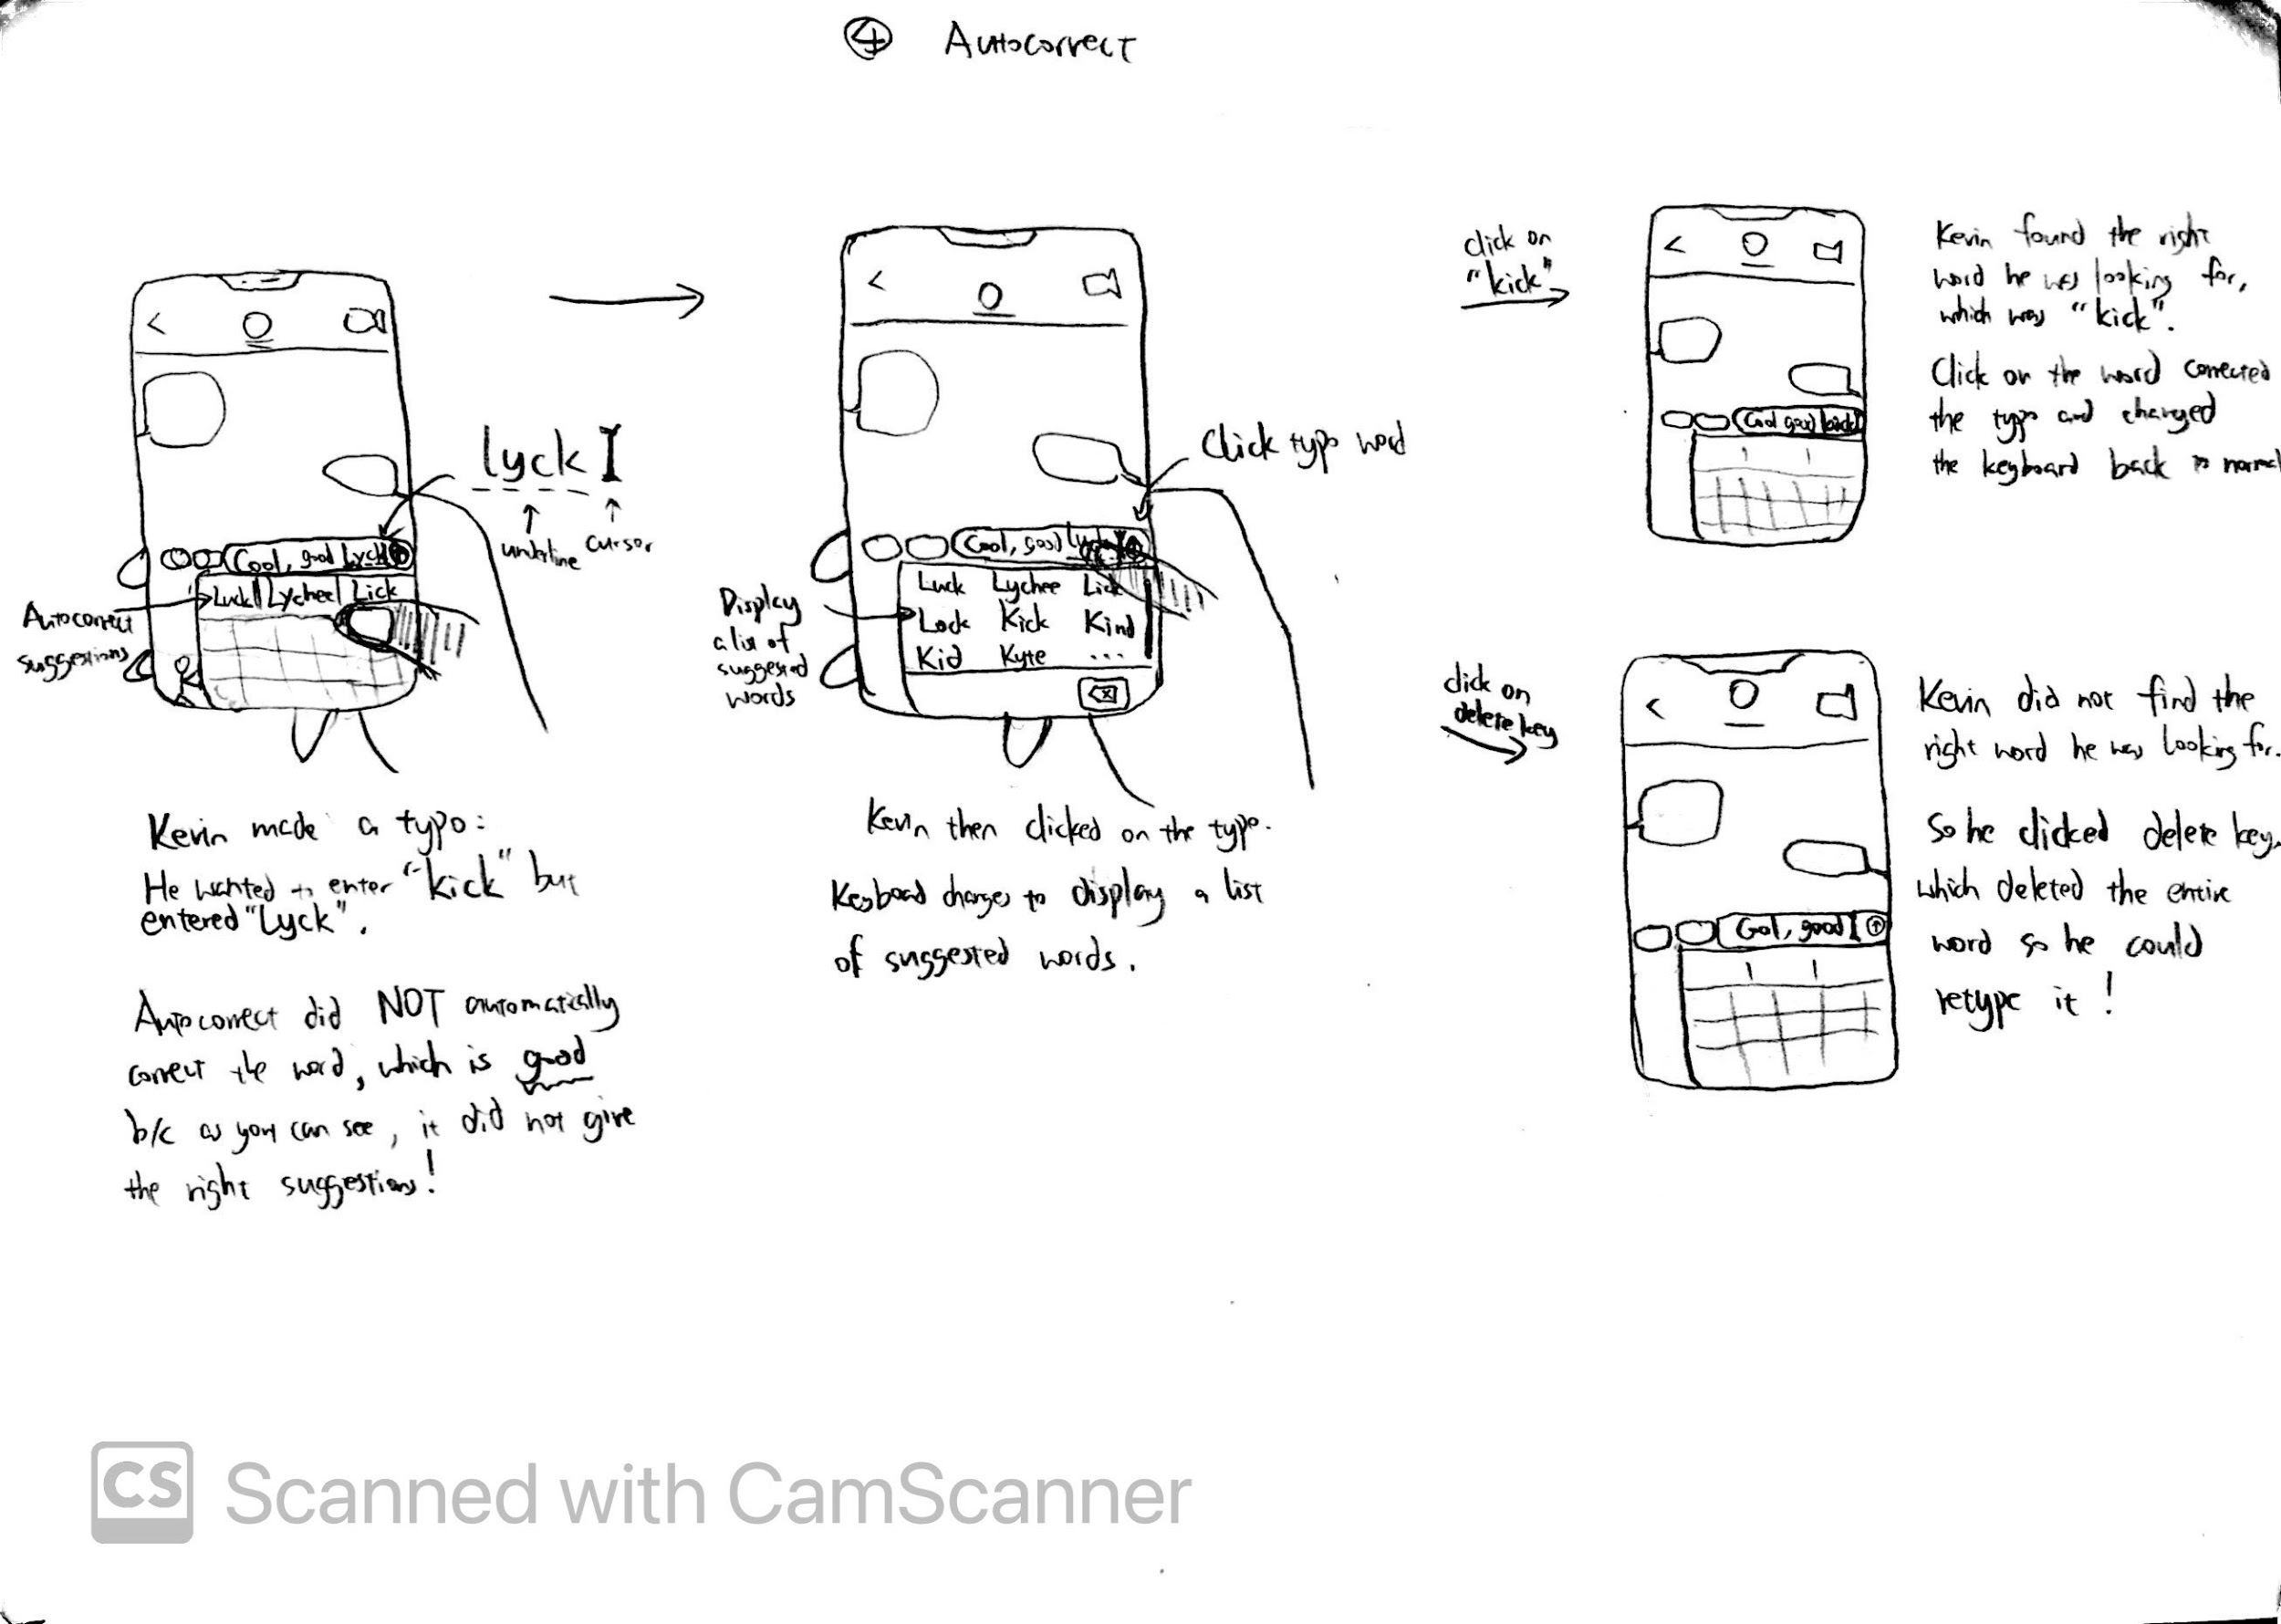 ④ Autocorrect
lyck I
underline
cursor
Cool, good Lyck
Luck Lychee Lick
Autocorrect
suggestions
Kevin made a typo:
He wanted to enter "kick" but
entered "Lyck".
Autocorrect did NOT automatically
correct the word, which is good
b/c as you can see, it did not give
the right suggestions!
Click typo word
Cool, good Lyck
Luck Lychee Lick
Lock Kick Kind
Kid Kyte ...
Display
a list of
suggested
words
Kevin then clicked on the typo.
Keyboard changes to display a list
of suggested words.
click on
"kick"
Cool good kick
Kevin found the right
word he was looking for,
which was "kick".
Click on the word corrected
the typo and changed
the keyboard back to normal
click on
delete key
Cool, good
Kevin did not find the
right word he was looking for.
So he clicked delete key,
which deleted the entire
word so he could
retype it!
CS Scanned with CamScanner